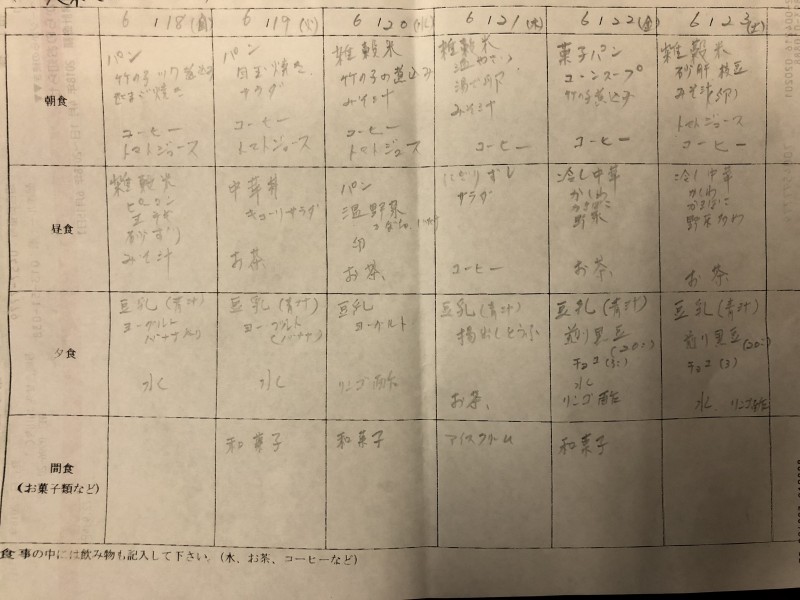 6/18(月) 6/19(火) 6/20(水) 6/21(木) 6/22(金) 6/23(土)
朝食
パン
竹の子
コーヒー
トマトジュース
パン
目玉焼き
サラダ
コーヒー
トマトジュース
雑穀米
竹の子の煮込み
みそ汁
コーヒー
トマトジュース
雑穀米
みそ汁
コーヒー
菓子パン
コーンスープ
竹の子煮込み
コーヒー
雑穀米
砂肝 枝豆
みそ汁(卵)
トマトジュース
コーヒー
昼食
雑穀米
ピーマン
みそ汁
中華丼
キューリサラダ
お茶
パン
温野菜
卵
お茶
にぎりずし
サラダ
コーヒー
冷し中華
かしわ
かまぼこ
野菜
お茶
冷し中華
かしわ
かまぼこ
お茶
夕食
豆乳(青汁)
ヨーグルト
水
豆乳(青汁)
ヨーグルト
(バナナ)
水
豆乳
ヨーグルト
リンゴ酢
豆乳(青汁)
揚出しとうふ
お茶
豆乳(青汁)
煎り黒豆
(20コ)
チョコ(5コ)
水
リンゴ酢
豆乳(青汁)
煎り黒豆
(20コ)
チョコ(3)
水 リンゴ酢
間食
(お菓子類など)
和菓子
和菓子
アイスクリーム
和菓子
食事の中には飲み物も記入して下さい。(水、お茶、コーヒーなど)